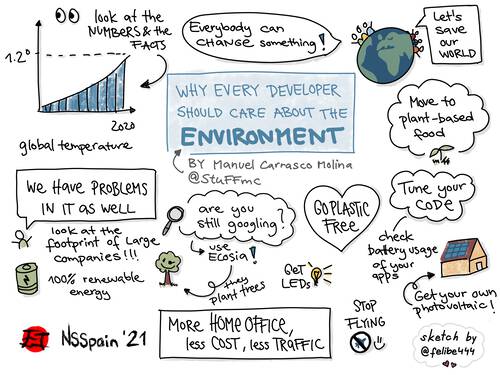 look at the
NUMBERS & the
FACTS
1.2°
2020
global temperature
Everybody can
CHANGE something!
Let's
save
our
WORLD
WHY EVERY DEVELOPER
SHOULD CARE ABOUT THE
ENVIRONMENT
BY Manuel Carrasco Molina
@StuFFmc
Move to
plant-based
food
WE HAVE PROBLEMS
IN IT AS WELL
look at the
footprint of large
companies!!!
100% renewable
energy
are you
still googling?
use
Ecosia!
they
plant trees
GO PLASTIC
FREE
GET
LEDs
Tune your
CODE
check
battery usage
of your
apps
Get your own
photovoltaic!
STOP
FLYING
MORE HOME OFFICE,
less COST, less TRAFFIC
NSSpain '21
sketch by
@felibe444